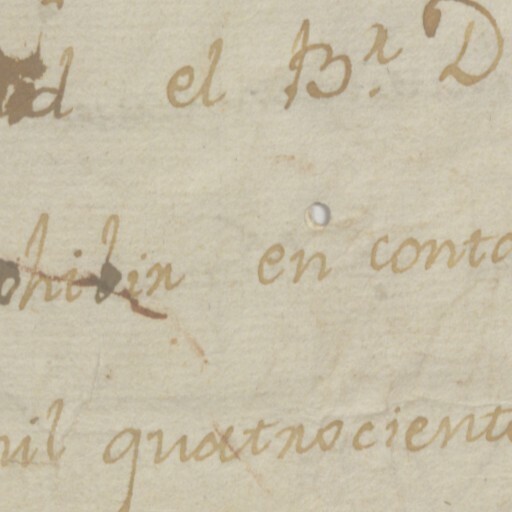 d el Br. D
ohibir en conta
mil quatrociento